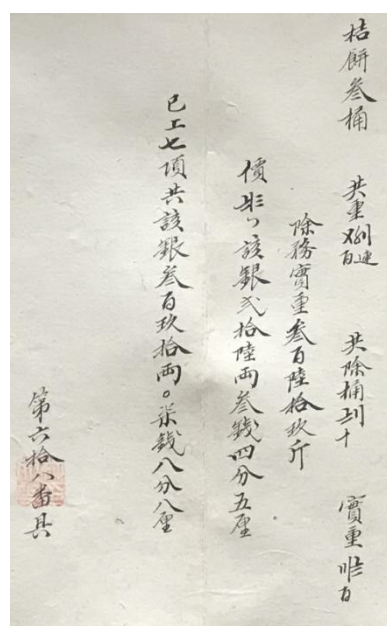 桔餅叁桶 共重 共除桶 實重
除務實重叁百陸拾玖斤
價 該銀弍拾陸両叁錢四分五厘
已上七項共該銀叁百玖拾両〇柒錢八分八厘
第六拾八番具